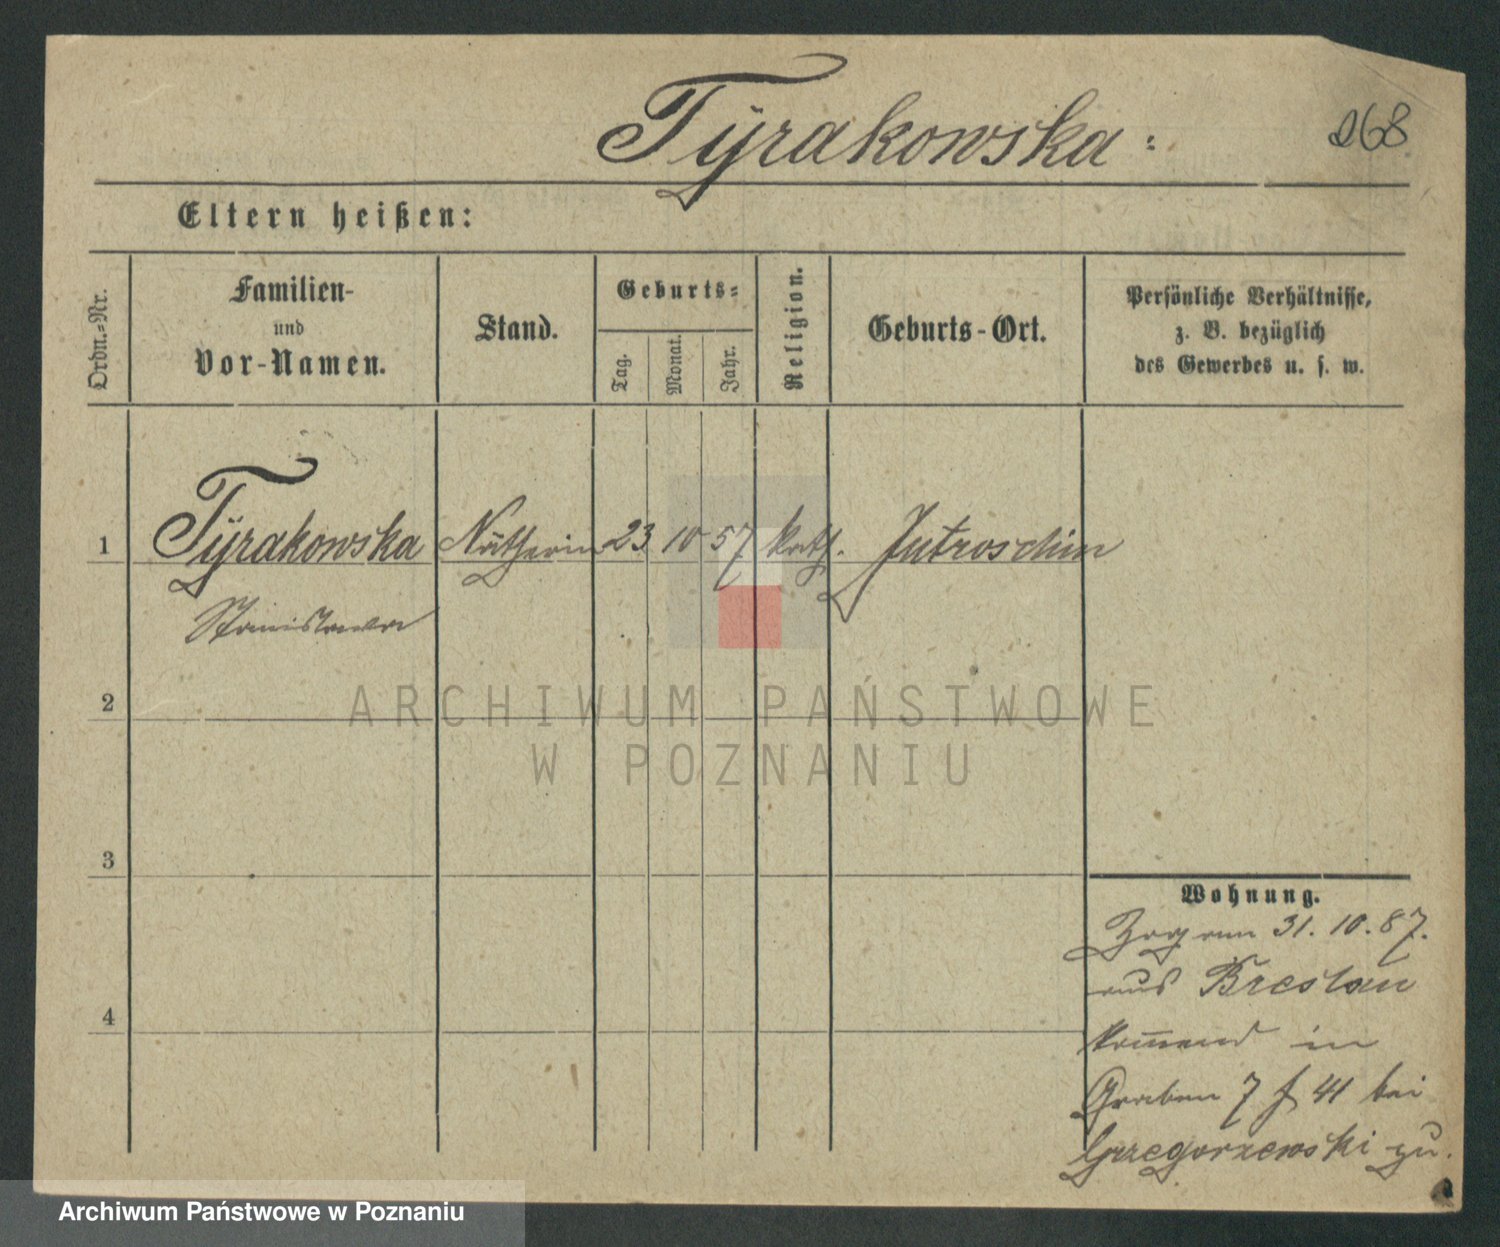 Tyrakowska:
268
Eltern heißen:
Ordn.=Nr.
Familien-
und
Vor-Namen.
Stand.
Geburts=
Tag.
Monat.
Jahr.
Religion.
Geburts-Ort.
Persönliche Verhältnisse,
z. B. bezüglich
des Gewerbes u. s. w.
1 Tyrakowska Nätherin 23 10 57 kath. Jutroschin
Stanislawa
2
ARCHIWUM PAŃSTWOWE
W POZNANIU
3
Wohnung.
Zog am 31. 10. 87.
aus Breslau
4
kom̅end in
Graben 7 f 41 bei
Grzegorzewski zu.
Archiwum Państwowe w Poznaniu